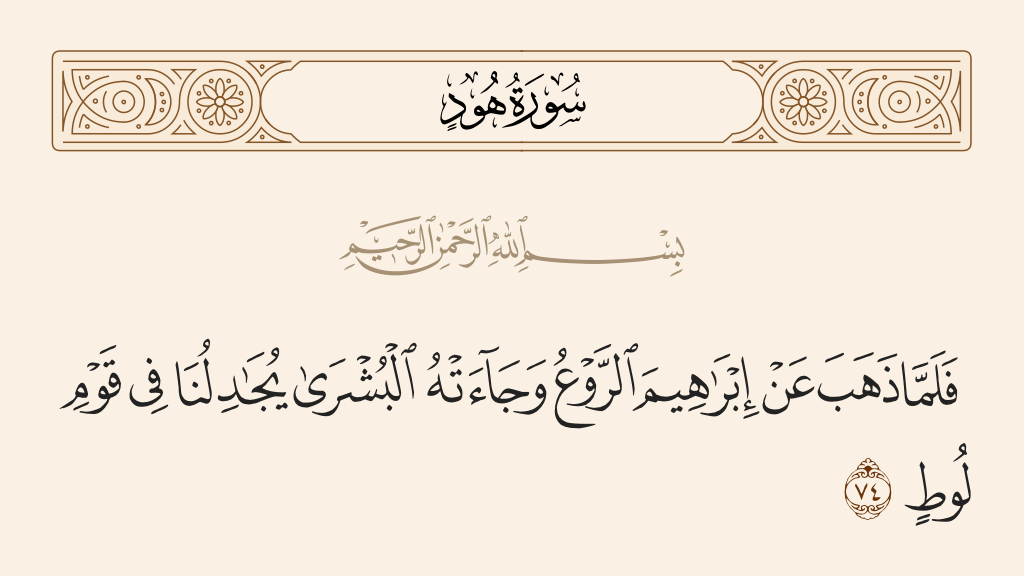 سُورَةُ هُودٍ
بِسْمِ ٱللَّهِ ٱلرَّحْمَٰنِ ٱلرَّحِيمِ
فَلَمَّا ذَهَبَ عَنْ إِبْرَٰهِيمَ ٱلرَّوْعُ وَجَآءَتْهُ ٱلْبُشْرَىٰ يُجَٰدِلُنَا فِى قَوْمِ
لُوطٍ ٧٤